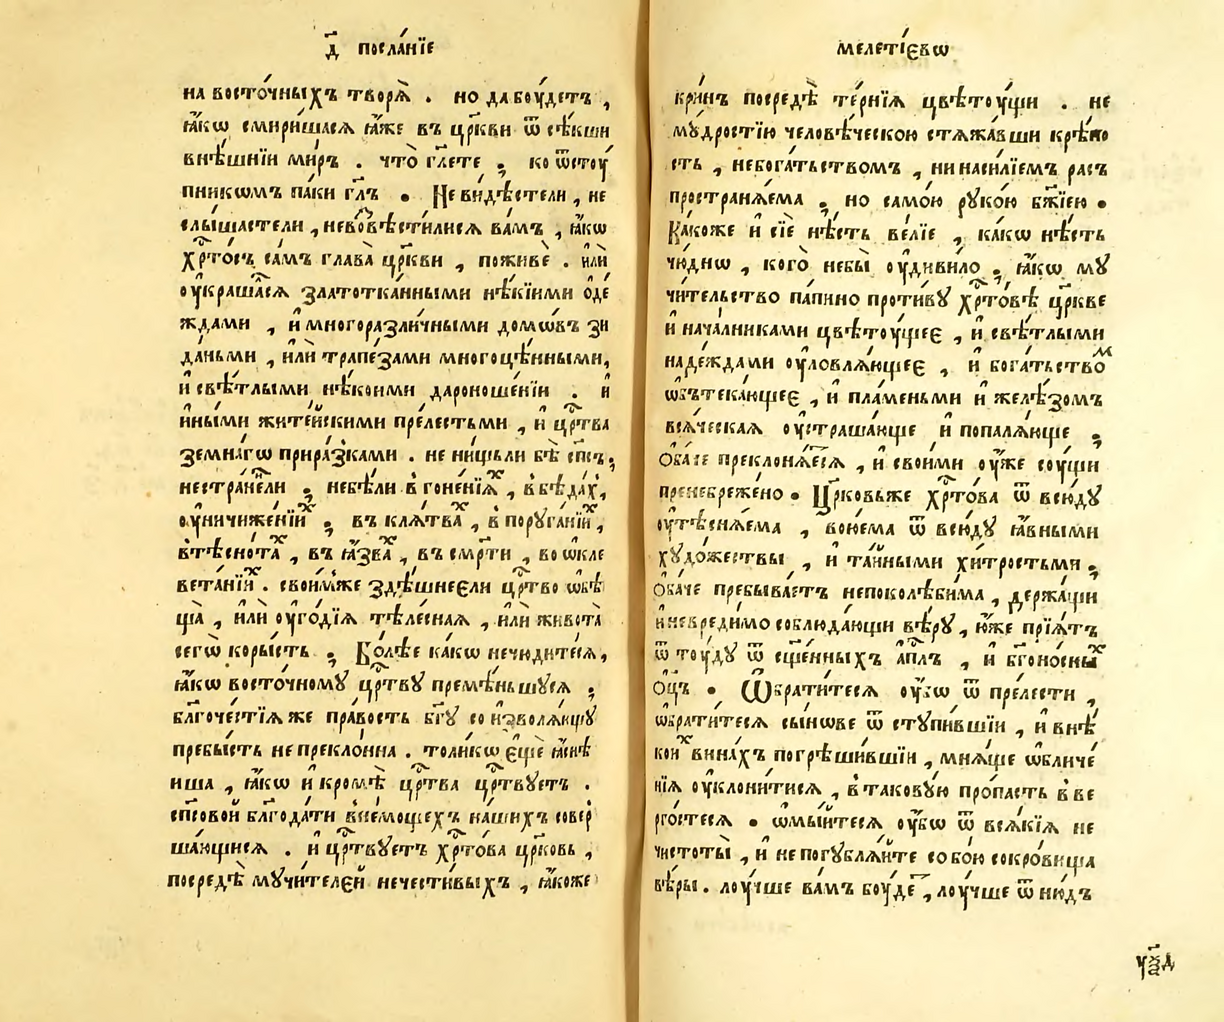 д҃ посла́нїе
на восто́чныхъ творѧ̀ . но да бꙋ́детъ ,
ꙗ҆́кѡ смири́шасѧ ꙗ҆́же въ цр҃кви ѿ сѣ́кши
внѣ́шнїи ми́ръ . что̀ гл҃ете ; ко ѿстоу́
пникѡмъ па́ки гл҃ъ . Не ви́дѣстели , не
слы́шастели , невозвѣсти́лисѧ ва́мъ , ꙗ҆́кѡ
хрⷭ҇то́съ са́мъ глава̀ цр҃кви , поживѐ . и҆лѝ
оу҆краша́сѧ златотка́нными нѣ́кїими ѻ҆де́
ждами , и҆ многоразли́чными домѡ́въ зи
да́ньми , и҆лѝ трапе́зами многоцѣ́нными,
и҆ свѣ́тлыми нѣ́коими дароноше́нїи . и҆
и҆ны́ми жите́йскими пре́лестьми , и҆ црⷭ҇тва
земна́гѡ прира́зками . не ни́щьли бѣ̀ сп҃съ,
нестра́ненли ; небѣ́ли в гоне́нїѧⷯ , в бѣда́х,
оу҆ничиже́нїиⷯ ; въ клѧ́тваⷯ , в порꙋга́нїиⷯ ,
втѣснота́ⷯ , въ ꙗ҆́зваⷯ , въ сме́рти , во ѡ҆кле
вета́нїиⷯ . свои́мже здѣ́шнеели црⷭ҇тво ѡ҆бѣ
ща̀ , и҆лѝ оу҆го́дїѧ тѣле́снаѧ , и҆лѝ живота̀
сегѡ̀ коры́сть ; Бо́лѣе ка́кѡ нечю́дитесѧ ,
ꙗ҆́кѡ восто́чномꙋ црⷭ҇твꙋ премѣ́ньшꙋсѧ ;
бл҃гоче́стїѧ же пра́вость бг҃ꙋ соизволѧ́ющꙋ
пребы́сть не прекло́нна . толи́кѡ є҆щѐ ꙗ҆снѣ́
иша , ꙗ҆́кѡ и҆ кромѣ̀ црⷭ҇тва црⷭ҇твꙋетъ .
сп҃совой бл҃года́ти в не́мощехъ на́шихъ совер
ша́ющисѧ . и҆ црⷭ҇твꙋетъ хрⷭ҇то́ва цр҃ковь ,
посредѣ̀ мꙋчи́телєй нечести́выхъ , ꙗ҆́коже
меле́тїєвѡ
кри́нъ посредѣ̀ те́рнїѧ цвѣтоу́щи . не
мꙋ́дростїю человѣ́ческою стѧжа́вши крѣ́по
сть , небога́тьствомъ , ни наси́лїемъ расъ
пространѧ́ема ; но само́ю рꙋко́ю бж҃їею .
Ка́коже и҆ сїѐ нѣ́сть ве́лїе , ка́кѡ нѣ́сть
чю́днѡ , кого̀ небы̀ оу҆диви́ло , ꙗ҆́кѡ мꙋ
чи́тельство па́пино проти́вꙋ хрⷭ҇то́вѣ цр҃кве
и҆ нача́лниками цвѣтоу́щеє , и҆ свѣ́тлыми
наде́ждами оу҆ловлѧ́ющеє , и҆ бога́тьствоⷨ
ѡ҆бътека́ющеє , и҆ пла́меньми и҆ желѣ́зомъ
всѧ́ческаѧ оу҆страша́юще и҆ попалѧ́юще ;
Ѻ҆ба́че преклонѧ́етсѧ , и҆ свои́ми оу҆́же соу́щи
пренебреже́но . Цр҃ковьже хрⷭ҇то́ва ѿ всю́дꙋ
оу҆тѣснѧ́ема , вою́ема ѿ всю́дꙋ ꙗ҆́вными
хꙋдо́жествы , и҆ та́йными хи́тростьми ;
Ѻ҆ба́че пребыва́етъ непоколѣ́бима , держа́щи
и҆ невреди́мо соблюда́ющи вѣ́рꙋ , ю҆́же прїѧ́тъ
ѿ тоу́дꙋ ѿ сщ҃е́нныхъ а҆пⷭ҇лъ , и҆ бг҃оно́сныⷯ
Ѻ҆ц҃ъ . Ѡ҆брати́тесѧ оу҆́бѡ ѿ пре́лести ,
ѡ҆брати́тесѧ сы́нове ѿ стꙋпи́вшїи , и҆ в нѣ́
коиⷯ вина́хъ погрѣши́вшїи , мнѧ́ще ѡ҆бличе́
нїѧ оу҆клони́тисѧ , в такову́ю про́пасть в ве
рго́стесѧ . ѡ҆мы́йтесѧ оу҆́бѡ ѿ всѧ́кїѧ не
чистоты̀ , и҆ не погꙋблѧ́йте собо́ю сокро́вища
вѣ́ры . лоу́чше ва́мъ боу́де , лоу́чше ѿ ню́дъ
уѯ҃д